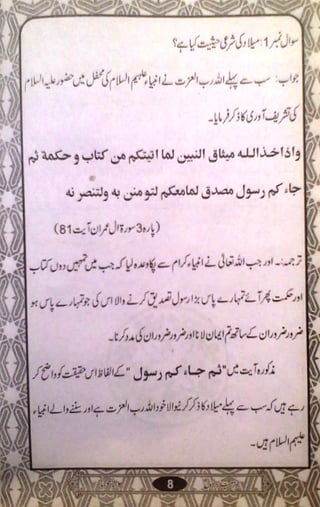 سوال نمبر 1: میلاد کی شرعی حیثیت کیا ہے؟
جواب: سب سے پہلے اللہ رب العزت نے انبیاء علیہم السلام کی محفل میں حضور علیہ السلام
کی تشریف آوری کا ذکر فرمایا۔
واذاخذالله میثاق النبین لما اتیتکم من کتاب و حکمة ثم
جاء کم رسول مصدق لمامعکم لتومنن به ولتنصر نه
(پارہ 3 سورة ال عمران آیت 81)
ترجمہ:۔ اور جب اللہ تعالیٰ نے انبیاء کرام سے پکا وعدہ لیا کہ جب میں تمہیں دوں کتاب
اور حکمت پھر آئے تمہارے پاس بڑا رسول تصدیق کرنے والا اس کی جو تمہارے پاس ہو
ضرور ضرور ان کے ساتھ تم ایمان لانا اور ضرور ضرور ان کی مدد کرنا۔
مذکورہ آیت میں "ثم جاء کم رسول" کے الفاظ اس حقیقت کو واضح کر
رہے ہیں کہ سب سے پہلے میلاد کا ذکر کرنیوالا خود اللہ رب العزت ہے اور سننے والے انبیاء
علیہم السلام ہیں۔
8